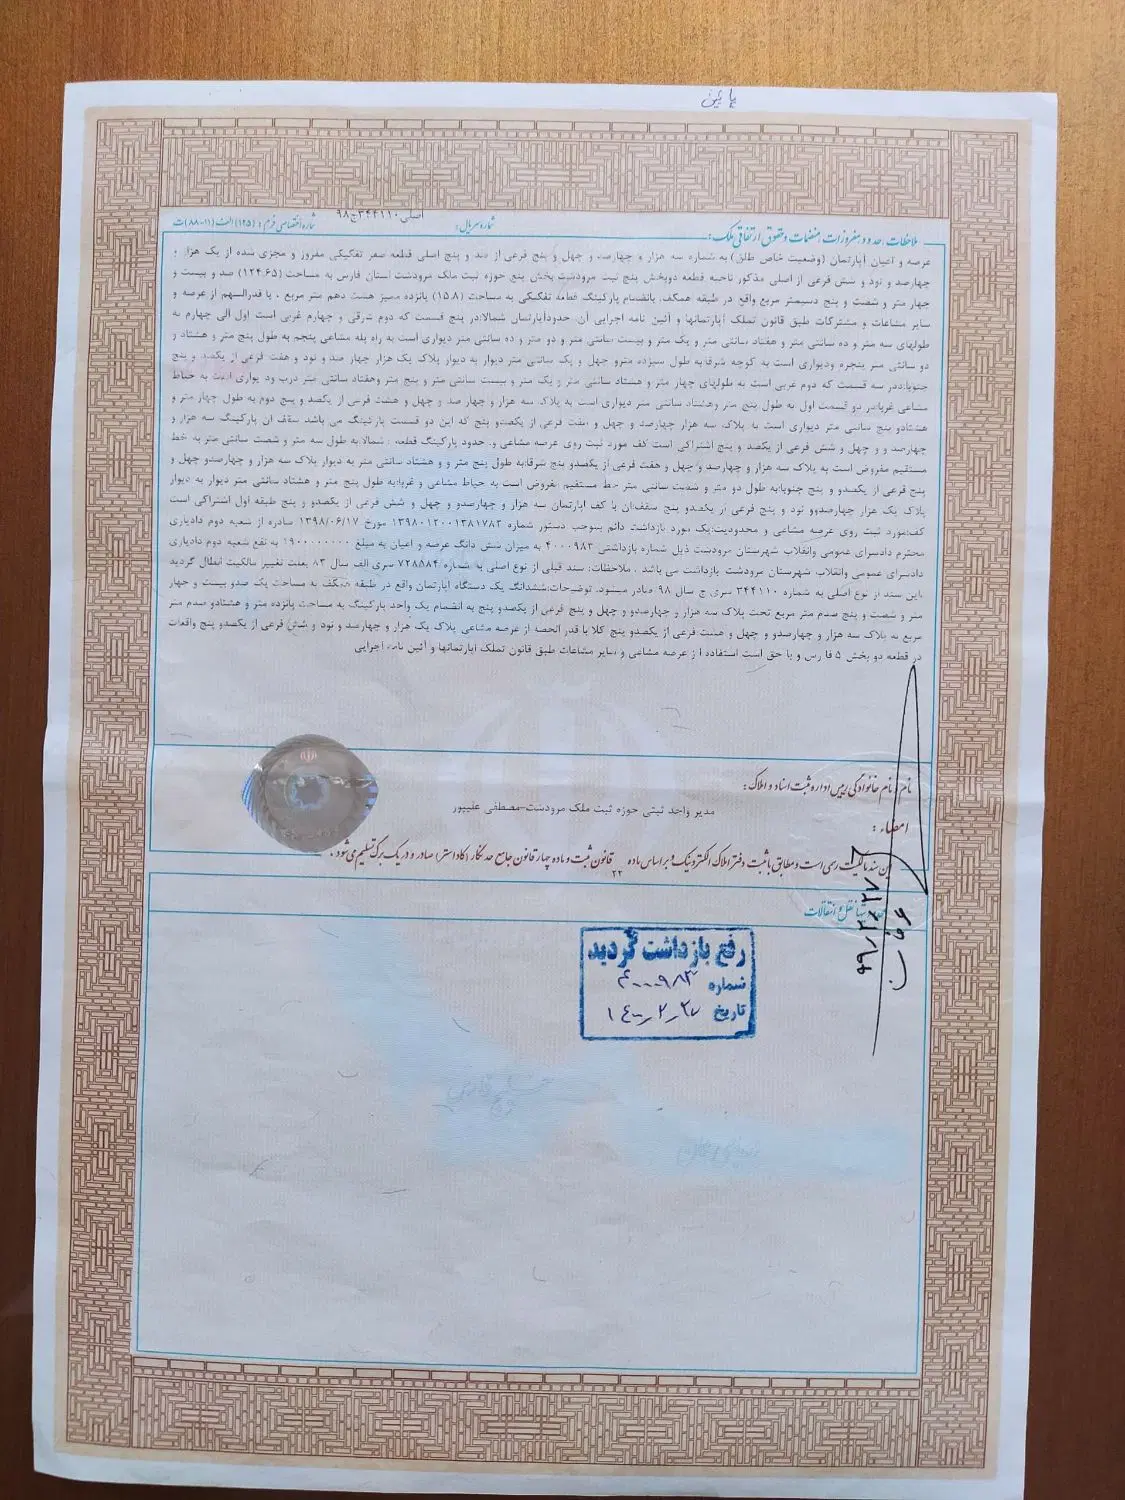 پائین
اصلی۳۴۴۱۱۰ج۹۸
شماره سریال: شماره اختصاصی فرم: (۱۲۵) الف (۱۱-۸۸) ت
ملاحظات، حدود، مفروزات، منضمات و حقوق ارتفاقی ملک:
عرصه و اعیان آپارتمان (وضعیت خاص طلق) به شماره سه هزار و چهارصد و چهل و پنج فرعی از صد و پنج اصلی قطعه صفر تفکیکی مفروز و مجزی شده از یک هزار و
چهارصد و نود و شش فرعی از اصلی مذکور ناحیه قطعه دوبخش پنج ثبت مرودشت بخش پنج حوزه ثبت ملک مرودشت استان فارس به مساحت (۱۲۴.۶۵) صد و بیست و
چهار متر و شصت و پنج دسیمتر مربع واقع در طبقه همکف. بانضمام پارکینگ قطعه تفکیکی به مساحت (۱۵.۸) پانزده ممیز هشت دهم متر مربع ، با قدرالسهم از عرصه و
سایر مشاعات و مشترکات طبق قانون تملک آپارتمانها و آئین نامه اجرایی آن. حدودآپارتمان شمالا:در پنج قسمت که دوم شرقی و چهارم غربی است اول الی چهارم به
طولهای سه متر و ده سانتی متر و هفتاد سانتی متر و یک متر و بیست سانتی متر و دو متر و ده سانتی متر دیواری است به راه پله مشاعی پنجم به طول پنج متر و هشتاد و
دو سانتی متر پنجره ودیواری است به کوچه شرقا:به طول سیزده مترو چهل و یک سانتی متر دیوار به دیوار پلاک یک هزار چهار صد و نود و هفت فرعی از یکصد و پنج
جنوبا:در سه قسمت که دوم غربی است به طولهای چهار متر و هشتاد سانتی متر و یک متر و بیست سانتی متر و پنج متر وهفتاد سانتی متر درب ود یواری است به حیاط
مشاعی غربا:در دو قسمت اول به طول پنج متر وهشتاد سانتی متر دیواری است به پلاک سه هزار و چهار صد و چهل و هشت فرعی از یکصد و پنج دوم به طول چهار متر و
هشتادو پنج سانتی متر دیواری است به پلاک سه هزار چهارصد و چهل و هفت فرعی از یکصدو پنج که این دو قسمت پارتینگ می باشد سقف آن پارکینگ سه هزار و
چهارصد و و چهل و شش فرعی از یکصد و پنج اشتراکی است کف مورد ثبت روی عرصه مشاعی و. حدود پارکینگ قطعه : شمالا:به طول سه متر و شصت سانتی متر به خط
مستقیم مفروض است به پلاک سه هزار و چهارصد و چهل و هفت فرعی از یکصدو پنج شرقا:به طول پنج متر و و هشتاد سانتی متر به دیوار پلاک سه هزار و چهارصدو چهل و
پنج فرعی از یکصدو و پنج جنوبا:به طول دو متر و شصت سانتی متر خط مستقیم مفروض است به حیاط مشاعی و غربا:به طول پنج متر و هشتاد سانتی متر دیوار به دیوار
پلاک یک هزار چهارصدوو نود و پنج فرعی از یکصدو پنج سقف:آن با کف آپارتمان سه هزار و چهارصدو و چهل و شش فرعی از یکصدو و پنج طبقه اول اشتراکی است
کف:مورد ثبت روی عرصه مشاعی و محدودیت:یک مورد بازداشت دائم بموجب دستور شماره ۱۳۹۸۰۱۲۰۰۱۳۸۱۷۸۲ مورخ ۱۳۹۸/۰۶/۱۷ صادره از شعبه دوم دادیاری
محترم دادسرای عمومی وانقلاب شهرستان مرودشت ذیل شماره بازداشتی ۴۰۰۰۹۸۳ به میزان شش دانگ عرصه و اعیان به مبلغ ۱۹۰۰۰۰۰۰۰۰ به نفع شعبه دوم دادیاری
دادسرای عمومی وانقلاب شهرستان مرودشت بازداشت می باشد . ملاحظات: سند قبلی از نوع اصلی به شماره ۷۲۸۵۸۴ سری الف سال ۸۳ بعلت تغییر مالکیت ابطال گردید
،این سند از نوع اصلی به شماره ۳۴۴۱۱۰ سری ج سال ۹۸ صادر میشود. توضیحات:ششدانگ یک دستگاه آپارتمان واقع در طبقه همکف به مساحت یک صدو بیست و چهار
متر و شصت و پنج صدم متر مربع تحت پلاک سه هزار و چهارصدو و چهل و پنج فرعی از یکصدو پنج به انضمام یک واحد پارکینگ به مساحت پانزده متر و هشتادو صدم متر
مربع به پلاک سه هزار و چهارصدو و چهل و هشت فرعی از یکصدو پنج کلا با قدر الحصه از عرصه مشاعی پلاک یک هزار و چهارصد و نود و شش فرعی از یکصدو پنج واقعات
در قطعه دو بخش ۵ فارس و با حق است استفاده از عرصه مشاعی و سایر مشاعات طبق قانون تملک آپارتمانها و آئین نامه اجرایی
نام و نام خانوادگی رییس اداره ثبت اسناد و املاک:
مدیر واحد ثبتی حوزه ثبت ملک مرودشت-مصطفی علیپور
امضاء :
این سند مالکیت رسمی است و مطابق با ثبت دفتر املاک الکترونیک و بر اساس ماده ۲۲ قانون ثبت و ماده چهار قانون جامع حدنگار (کاداستر) صادر و در یک برگ تسلیم می‌شود.
نقل و انتقالات
رفع بازداشت گردید
شماره ۴۰۰۰۹۸۳
تاریخ ۱۴۰۰/۲/۲۷